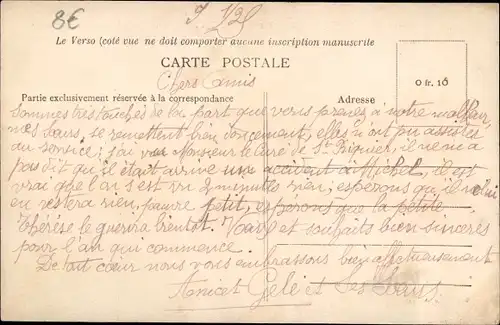 8€
Le Verso (côté vue ne doit comporter aucune inscription manuscrite
CARTE POSTALE
0 fr. 10
Chers Amis
Partie exclusivement réservée à la correspondance
Adresse
Sommes très touchés de la part que vous prenez à notre malheur
mes Sœurs, se remettent bien doucement, elles n'ont pu assister
au service; j'ai vu Monsieur le Curé de St Riquier, il ne m'a
pas dit qu'il était arrivé un accident à Michel, il est
vrai que l'on s'est vu minutte rien; espérons qu'il
en restera rien, pauvre petit, espérons que la petite
Thérèse le guérira bientôt. et souhaits bien sincères
pour l'an qui commence.
De tout cœur nous vous embrassons bien affectueusement
Anicet Gelé et Ses Sœurs